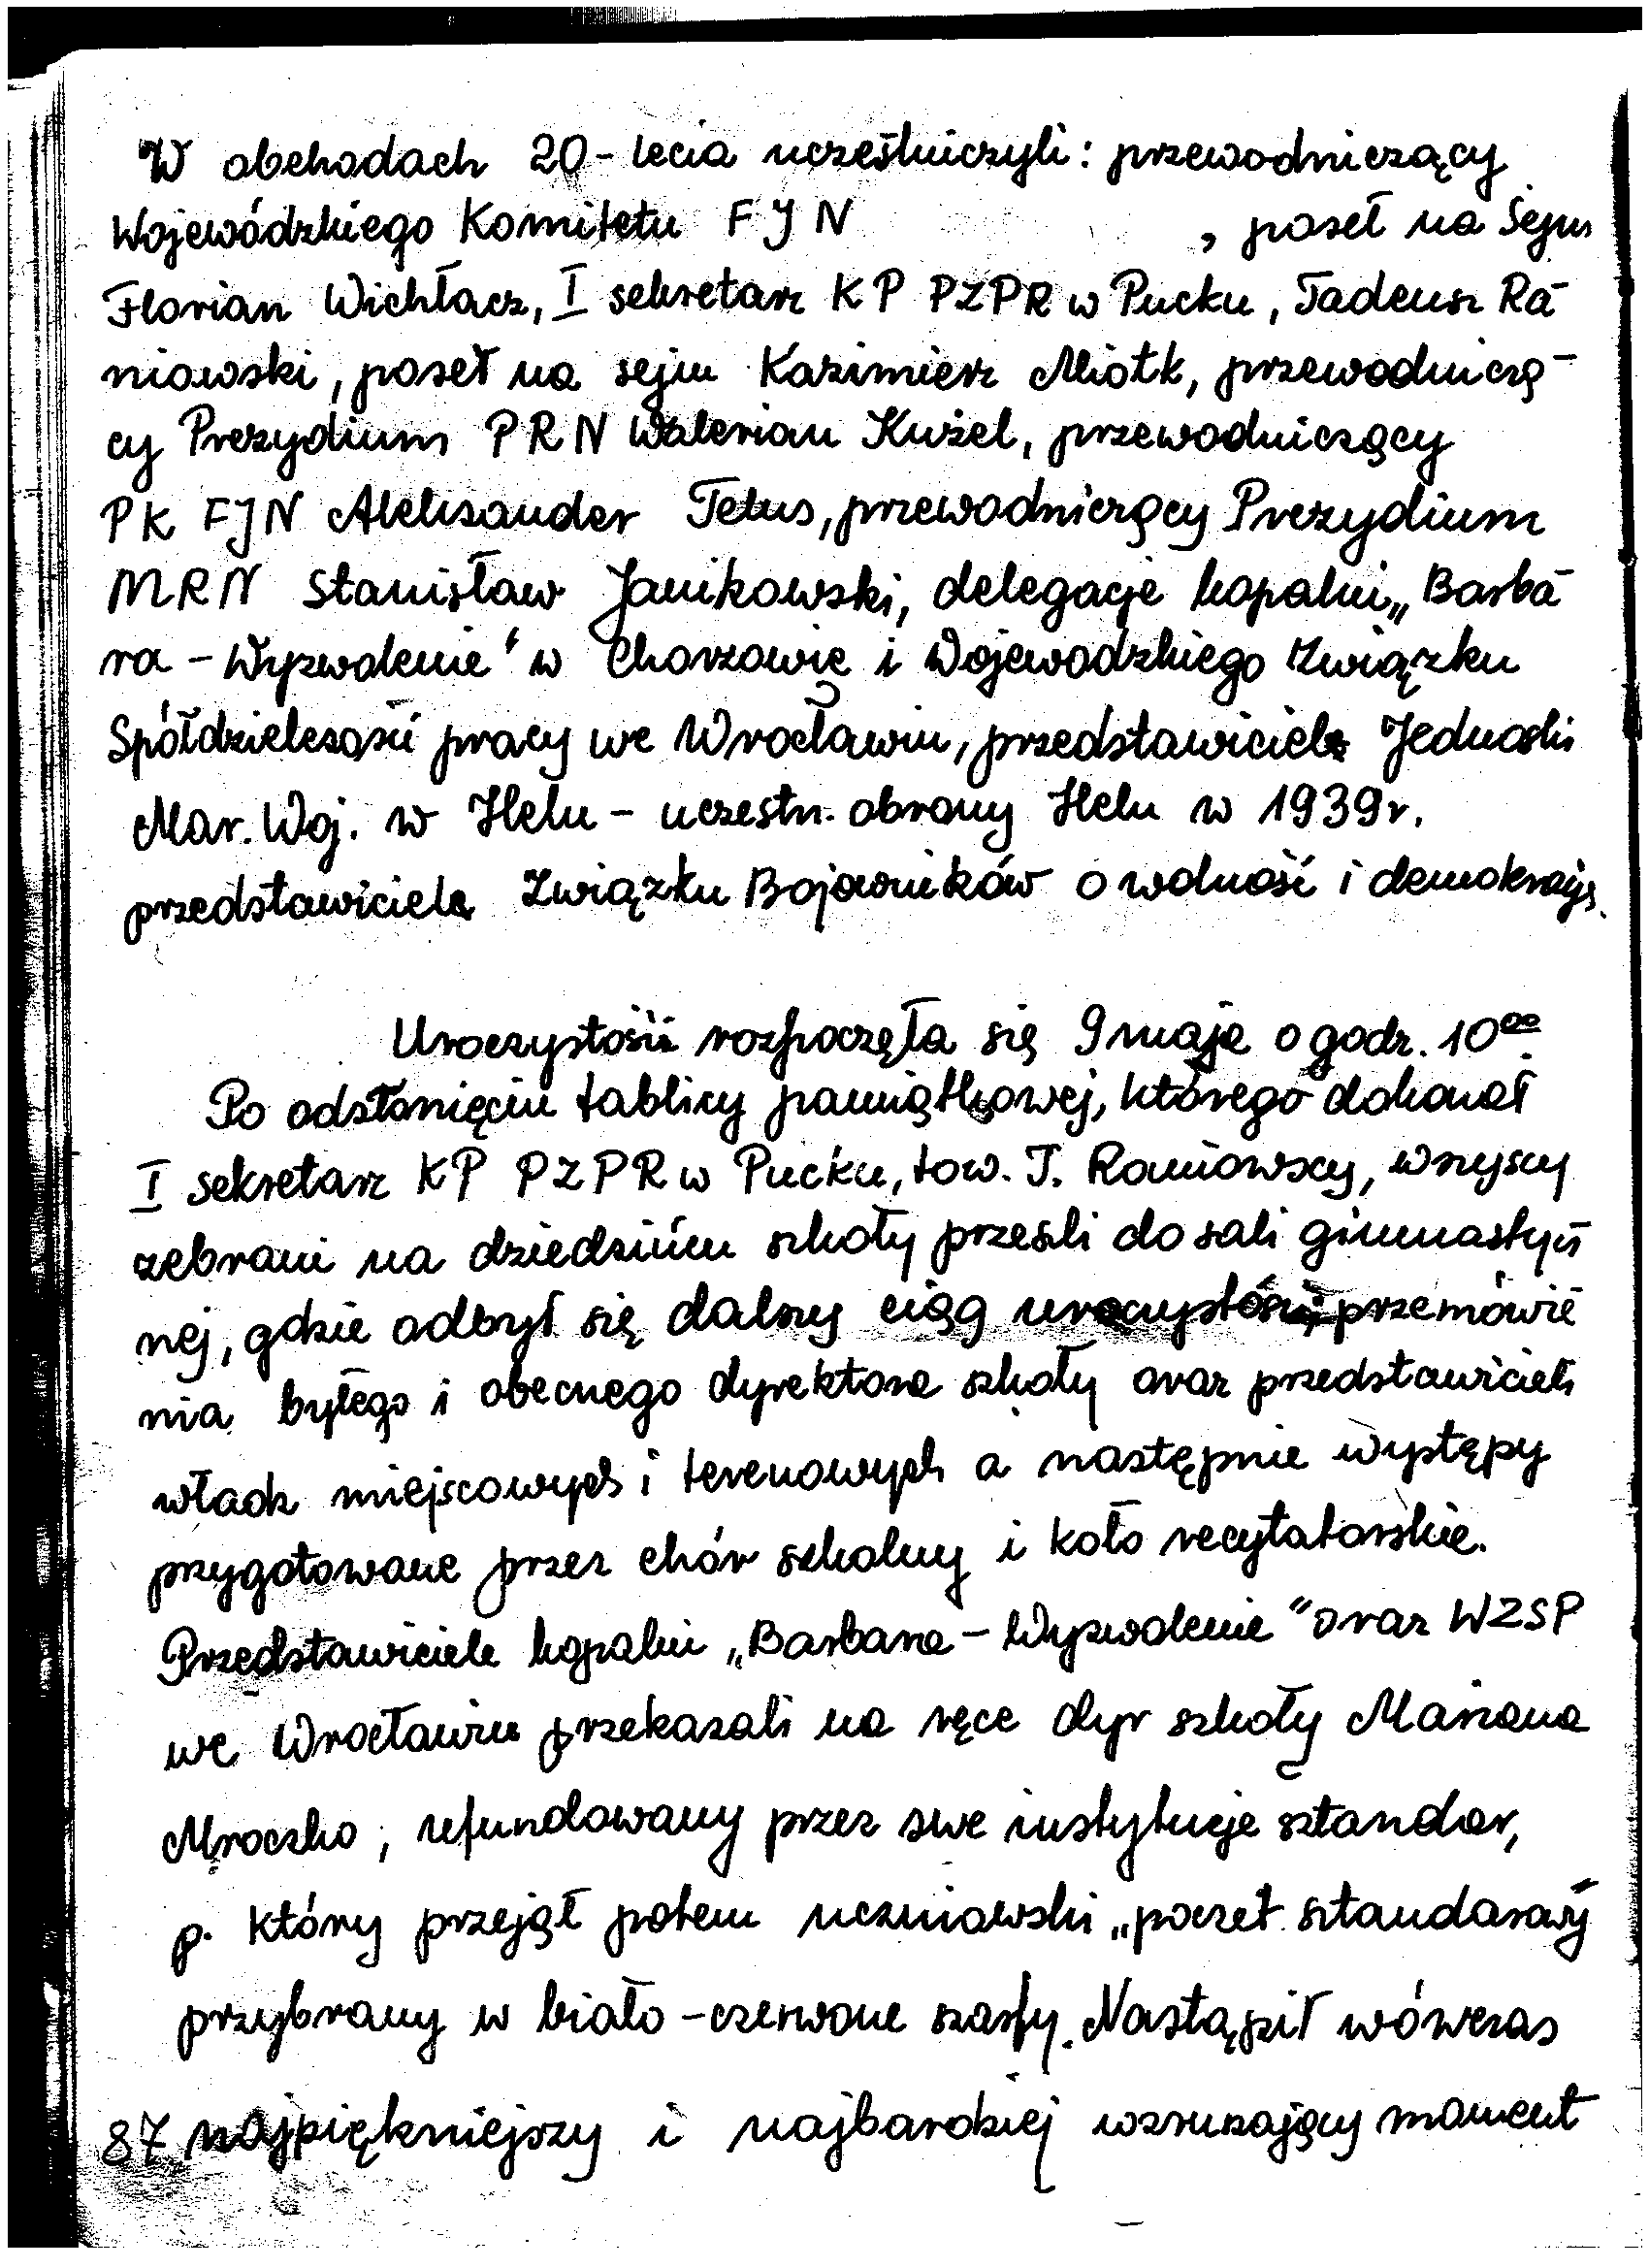 W obchodach 20-lecia uczestniczyli: przewodniczący
Wojewódzkiego Komitetu FJN , poseł na Sejm
Florian Wichłacz, I sekretarz KP PZPR w Pucku, Tadeusz Ra-
niowski, poseł na sejm Kazimierz Miotk, przewodniczą-
cy Prezydium PRN Walerian Kużel, przewodniczący
PK FJN Aleksander Tetus, przewodniczący Prezydium
MRN Stanisław Janikowski, delegacje kopalni „Barba-
ra - Wyzwolenie" w Chorzowie i Wojewodzkiego Związku
Spółdzielczości pracy we Wrocławiu, przedstawiciele Jednostki
Mar. Woj. w Helu - uczestn. obrony Helu w 1939 r.
przedstawiciele Związku Bojowników o wolność i demokrację.
Uroczystość rozpoczęła się 9 maja o godz. 10⁰⁰
Po odsłonięciu tablicy pamiątkowej, którego dokonał
I sekretarz KP PZPR w Pucku, tow. T. Raniowscy, wszyscy
zebrani na dziedzińcu szkoły przeszli do sali gimnastycz
nej, gdzie odbył się dalszy ciąg uroczystości, przemówie
nia byłego i obecnego dyrektora szkoły oraz przedstawicieli
władz miejscowych i terenowych a następnie występy
przygotowane przez chór szkolny i koło recytatorskie.
Przedstawiciele kopalni „Barbara - Wyzwolenie" oraz WZSP
we Wrocławiu przekazali na ręce dyr szkoły Mariana
Mroczko, ufundowany przez swe instytucje sztandar,
p. który przejął potem uczniowski „poczet sztandarowy
przybrany w biało-czerwone szarfy. Nastąpił wówczas
87 najpiękniejszy i najbardziej wzruszający moment